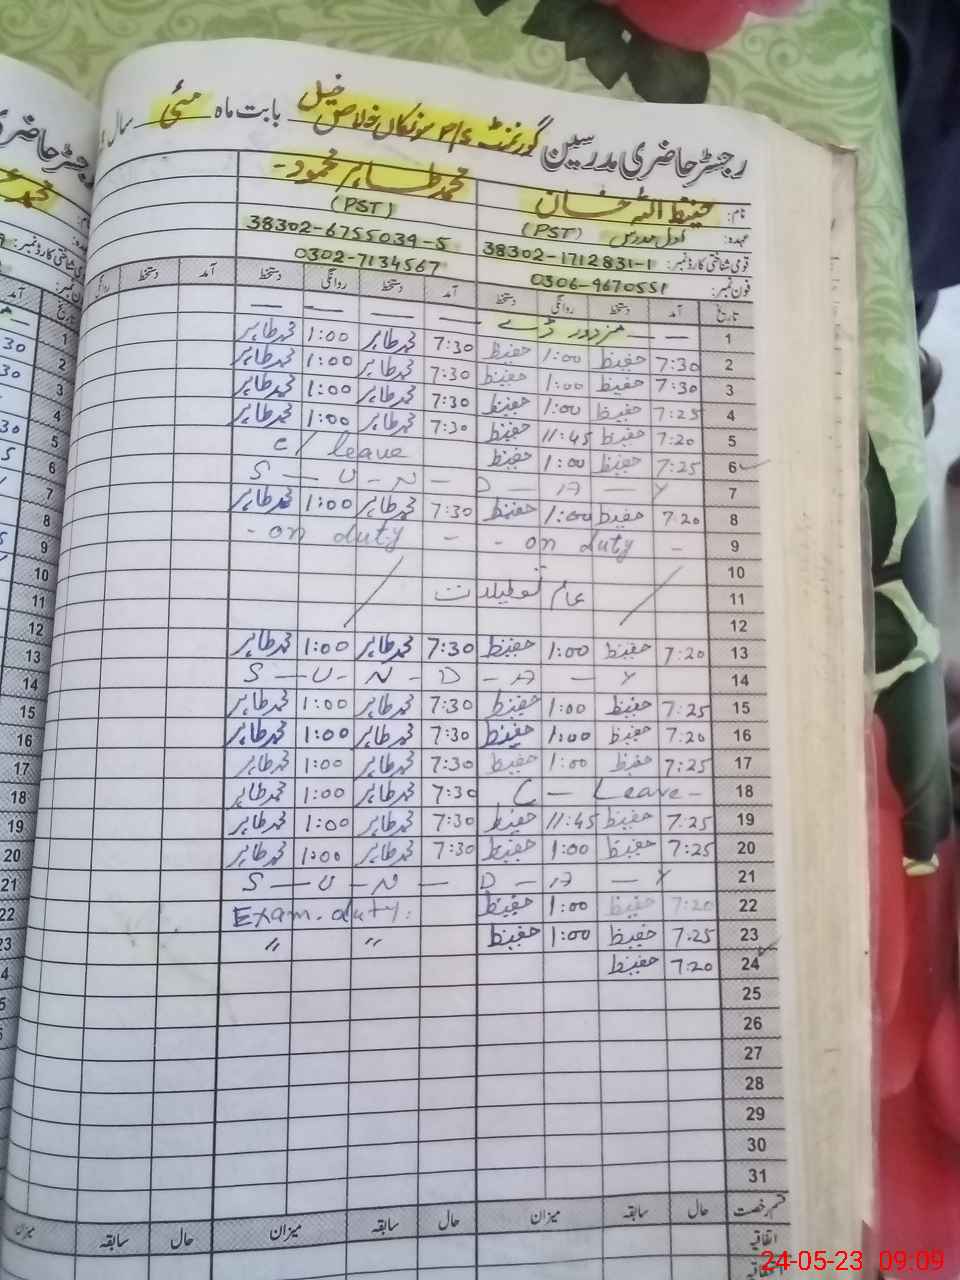 رجسٹر حاضری مدرسین گورنمنٹ بابت ماہ مئی سال
نام: حفیظ اللہ خان محمد طاہر محمود
عہدہ: اول مدرس (PST) (PST)
قومی شناختی کارڈ نمبر: 38302-1712831-1 38302-6755039-5
فون نمبر: 0306-9670551 0302-7134567
تاریخ آمد دستخط روانگی دستخط آمد دستخط روانگی دستخط آمد دستخط روانگی
1 — — مزدور ڈے — — — —
2 7:30 حفیظ 1:00 حفیظ 7:30 محمد طاہر 1:00 محمد طاہر
3 7:30 حفیظ 1:00 حفیظ 7:30 محمد طاہر 1:00 محمد طاہر
4 7:25 حفیظ 1:00 حفیظ 7:30 محمد طاہر 1:00 محمد طاہر
5 7:20 حفیظ 11:45 حفیظ 7:30 محمد طاہر 1:00 محمد طاہر
6 7:25 حفیظ 1:00 حفیظ c/ leave
7 S — U — N — D — A — Y
8 7:20 حفیظ 1:00 حفیظ 7:30 محمد طاہر 1:00 محمد طاہر
9 - on duty - - on duty -
10
11 عام تعطیلات
12
13 7:20 حفیظ 1:00 حفیظ 7:30 محمد طاہر 1:00 محمد طاہر
14 S — U - N - D - A - Y
15 7:25 حفیظ 1:00 حفیظ 7:30 محمد طاہر 1:00 محمد طاہر
16 7:20 حفیظ 1:00 حفیظ 7:30 محمد طاہر 1:00 محمد طاہر
17 7:25 حفیظ 1:00 حفیظ 7:30 محمد طاہر 1:00 محمد طاہر
18 C — Leave - 7:30 محمد طاہر 1:00 محمد طاہر
19 7:25 حفیظ 11:45 حفیظ 7:30 محمد طاہر 1:00 محمد طاہر
20 7:25 حفیظ 1:00 حفیظ 7:30 محمد طاہر 1:00 محمد طاہر
21 S — U - N — D - A — Y
22 7:20 حفیظ 1:00 حفیظ Exam. duty.
23 7:25 حفیظ 1:00 حفیظ " "
24 7:20 حفیظ
25
26
27
28
29
30
31
قسم رخصت حال سابقہ میزان حال سابقہ میزان حال سابقہ میزان
اتفاقیہ
24-05-23 09:09